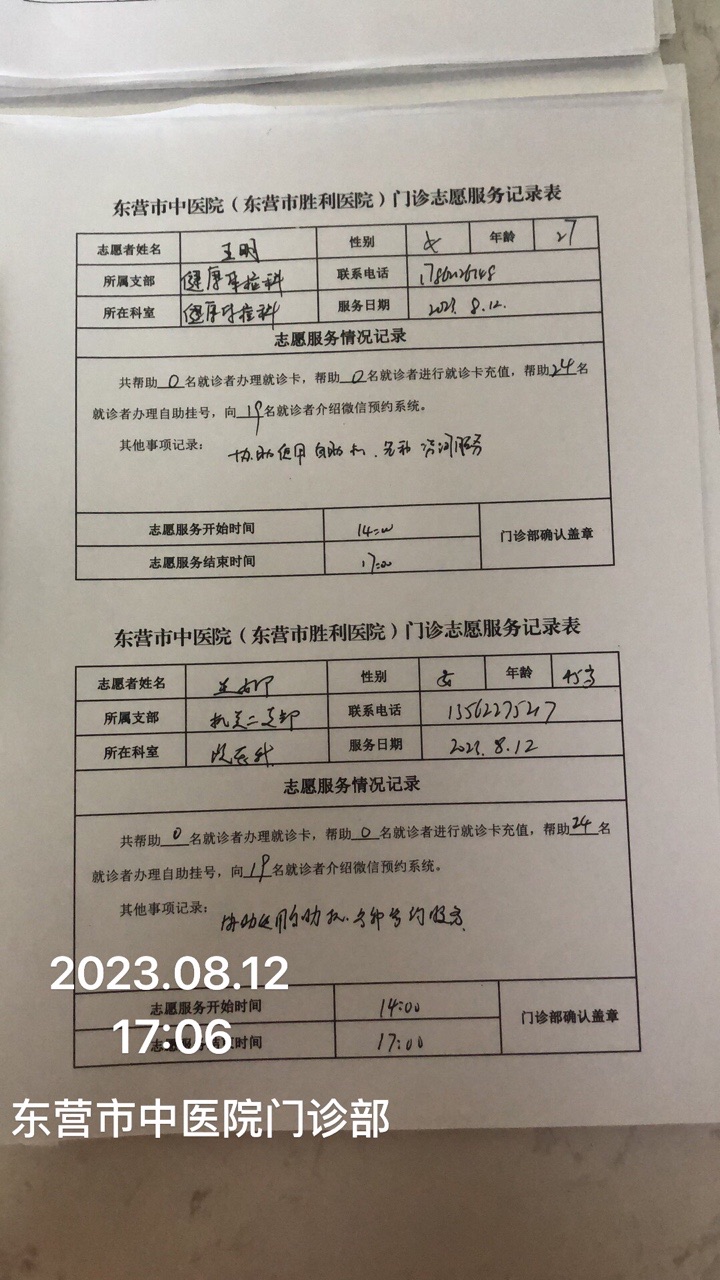 东营市中医院（东营市胜利医院）门诊志愿服务记录表
志愿者姓名 王明 性别 女 年龄 27
所属支部 健康 科 联系电话
所在科室 健康 科 服务日期 2023.8.12.
志愿服务情况记录
共帮助0名就诊者办理就诊卡，帮助0名就诊者进行就诊卡充值，帮助24名
就诊者办理自助挂号，向19名就诊者介绍微信预约系统。
其他事项记录：协助使用自助机、 咨询服务
志愿服务开始时间 14:00 门诊部确认盖章
志愿服务结束时间 17:00
东营市中医院（东营市胜利医院）门诊志愿服务记录表
志愿者姓名 性别 女 年龄
所属支部 机关二支部 联系电话 15562275217
所在科室 服务日期 2023.8.12
志愿服务情况记录
共帮助0名就诊者办理就诊卡，帮助0名就诊者进行就诊卡充值，帮助24名
就诊者办理自助挂号，向19名就诊者介绍微信预约系统。
其他事项记录：协助使用自助机、 服务
2023.08.12
志愿服务开始时间 14:00 门诊部确认盖章
17:06
志愿服务结束时间 17:00
东营市中医院门诊部